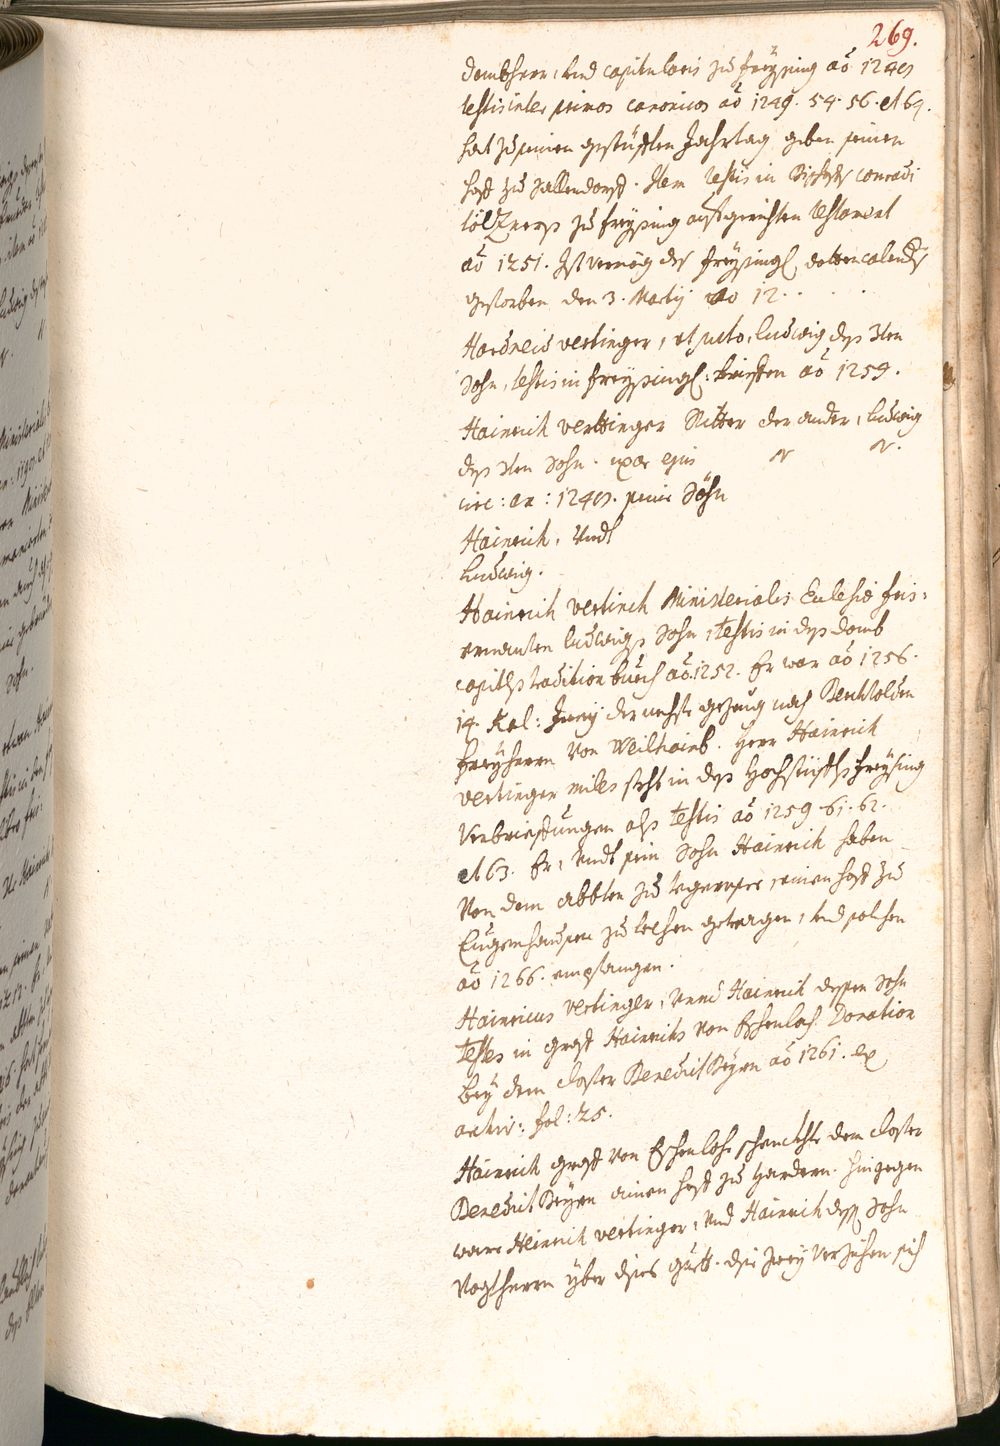 269.
dombherr, und capitularis zu freÿsing aõ 1240
testis inter primos canonicos aõ 1249. 54. 56. et 69.
hat zu seinen gestüfften Jahrtag geben seinen
hoff zu Hallendorff. Item testis in Bischoffs conradi
tölZners zu freÿsing aufgerichten testament
aõ 1251. Ist vermög des freÿsing: dottencalenders
gestorben den 3. Martij aõ 12 . . . .
Hardneid vertinger, et scito, ludwig dess 3ten
Sohn, testis in freÿsing: brieffen aõ 1259.
Hainrich verttinger Ritter der ander, ludwig
dess 3ten Sohn. uxor ejus N N.
circ: an: 1240. seine Söhn
Hainrich, undt
Ludwig.
Hainrich vertinch Ministerialis Ecclesiæ fris:
ernanten ludwigs Sohn, testis in dess domb
capitls tradition buech aõ. 1252. Er war aõ 1256.
14. Kal: Junij der nechste gezeug nach Berchtolden
freÿherrn von Weilhaimb. Herr Hainrich
vertinger miles steht in dess Hochstüffts freÿsing
Verbrieffungen als testis aõ 1259. 61. 62.
et 63. Er, undt sein Sohn Hainrich haben
von dem Abbten zu tegernsee, einen hoff zu
Eugenhausen zu lechen getragen, und solchen
aõ 1266. empfangen.
Hainricus vertinger, unnd Hainrich dessen Sohn
testes in graff Hainrichs von Eschenloch Donation
beÿ dem closter BenedictBeÿrn aõ 1261. ex
archiv: fol: 25.
Hainrich graff von Eschenlohe schenckhte dem closter
BenedictBeÿrn ainen hoff zu Hardern. hingegen
ware Heinrich vertinger, und Hainrich dess Sohn
Vogtherrn über dises guett. dise zweÿ verzichen sich